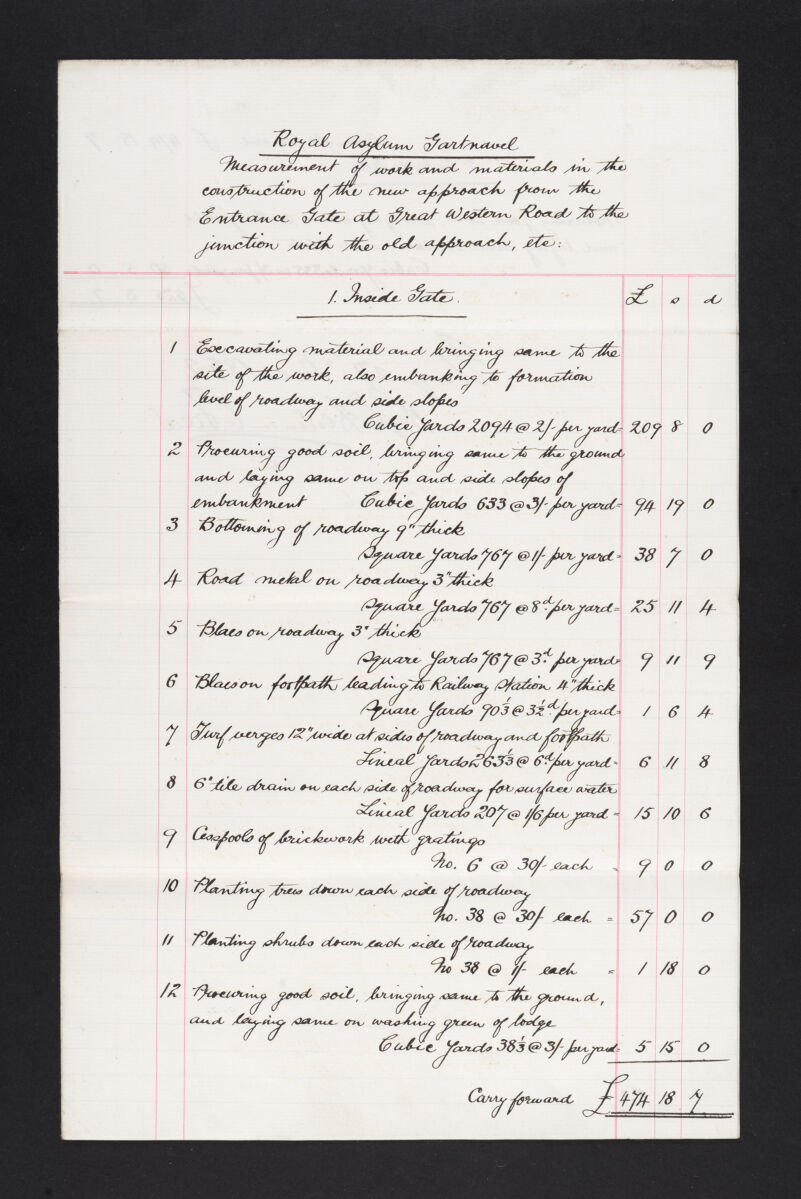 Royal Asylum Gartnavel
Measurement of work and materials in the
construction of the new approach from the
Entrance Gate at Great Western Road to the
junction with the old approach, etc:
1. Inside Gate. £ s d
1 Excavating material and bringing same to the
site of the work, also embanking to formation
level of roadway and side slopes
Cubic Yards 2094 @ 2/- per yard = 209 8 0
2 Procuring good soil, bringing same to the ground
and laying same on top and side slopes of
embankment Cubic Yards 633 @ 3/- per yard = 94 19 0
3 Bottoming of roadway 9" thick
Square Yards 767 @ 1/- per yard = 38 7 0
4 Road metal on roadway 3" thick
Square Yards 767 @ 8d. per yard = 25 11 4
5 Blaes on roadway 3" thick
Square Yards 767 @ 3d. per yard = 9 11 9
6 Blaes on footpath leading to Railway Station 4" thick
Square Yards 90 1/3 @ 3 1/2d. per yard = 1 6 4
7 Turf verges 12" wide at sides of roadway and footpath
Lineal Yards 263 1/3 @ 6d. per yard = 6 11 8
8 6" tile drain on each side of roadway for surface water
Lineal Yards 207 @ 1/6 per yard = 15 10 6
9 Cesspools of brickwork with gratings
No. 6 @ 30/- each = 9 0 0
10 Planting trees down each side of roadway
No. 38 @ 30/- each = 57 0 0
11 Planting shrubs down each side of roadway
No 38 @ 1/- each = 1 18 0
12 Procuring good soil, bringing same to the ground,
and laying same on washing green of lodge
Cubic Yards 38 1/3 @ 3/- per yard = 5 15 0
Carry forward £ 474 18 7